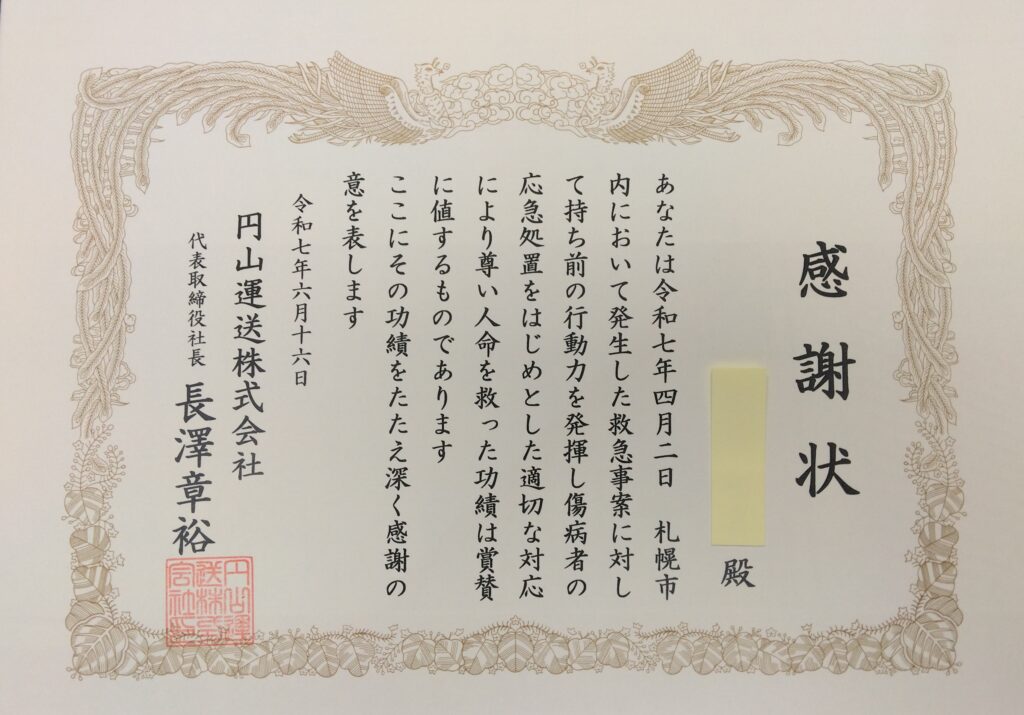 感謝状
殿
あなたは令和七年四月二日 札幌市
内において発生した救急事案に対し
て持ち前の行動力を発揮し傷病者の
応急処置をはじめとした適切な対応
により尊い人命を救った功績は賞賛
に値するものであります
ここにその功績をたたえ深く感謝の
意を表します
令和七年六月十六日
円山運送株式会社
代表取締役社長 長澤章裕
円山運
送株式
会社印